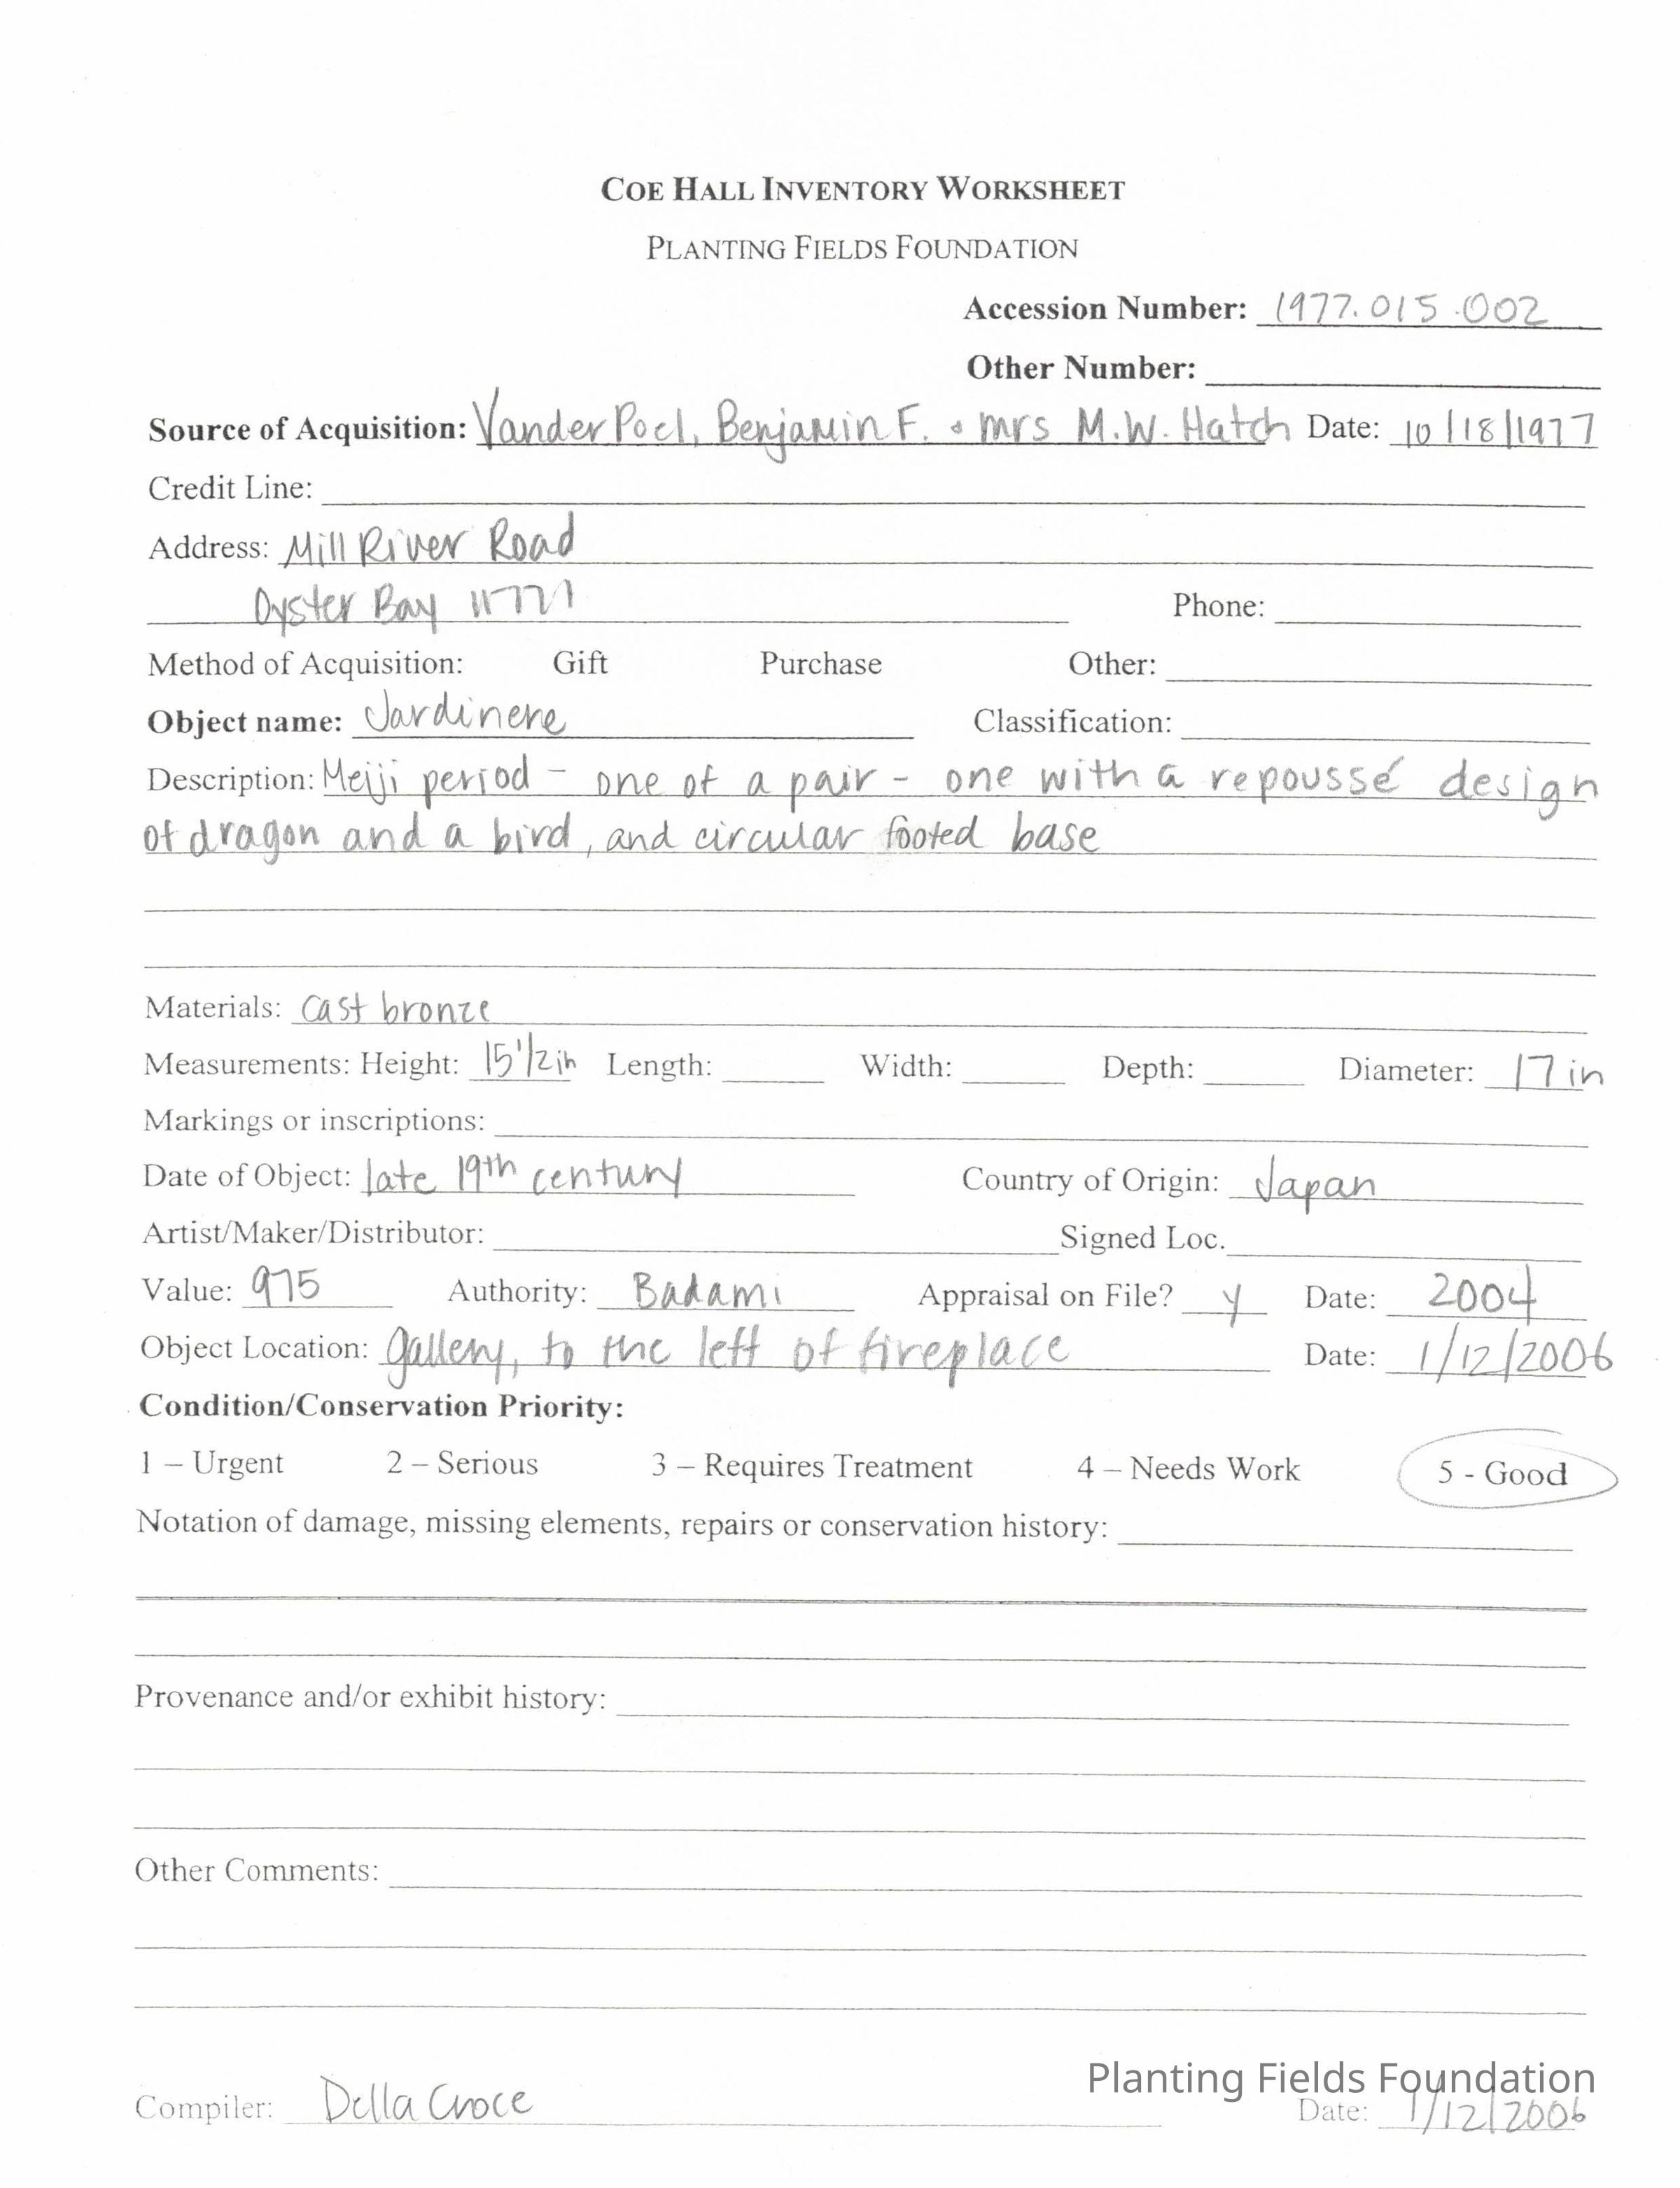 COE HALL INVENTORY WORKSHEET
PLANTING FIELDS FOUNDATION
Accession Number: 1977.015.002
Other Number:
Source of Acquisition: VanderPoel, Benjamin F. + Mrs M.W. Hatch Date: 10/18/1977
Credit Line:
Address: Mill River Road
Oyster Bay 11771 Phone:
Method of Acquisition: Gift Purchase Other:
Object name: Jardinere Classification:
Description: Meiji period - one of a pair - one with a repoussé design
of dragon and a bird, and circular footed base
Materials: cast bronze
Measurements: Height: 15 1/2 in Length: Width: Depth: Diameter: 17 in
Markings or inscriptions:
Date of Object: late 19th century Country of Origin: Japan
Artist/Maker/Distributor: Signed Loc.
Value: 975 Authority: Badami Appraisal on File? y Date: 2004
Object Location: gallery, to the left of fireplace Date: 1/12/2006
Condition/Conservation Priority:
1 – Urgent 2 – Serious 3 – Requires Treatment 4 – Needs Work 5 - Good
Notation of damage, missing elements, repairs or conservation history:
Provenance and/or exhibit history:
Other Comments:
Planting Fields Foundation
Compiler: Della Croce Date: 1/12/2006